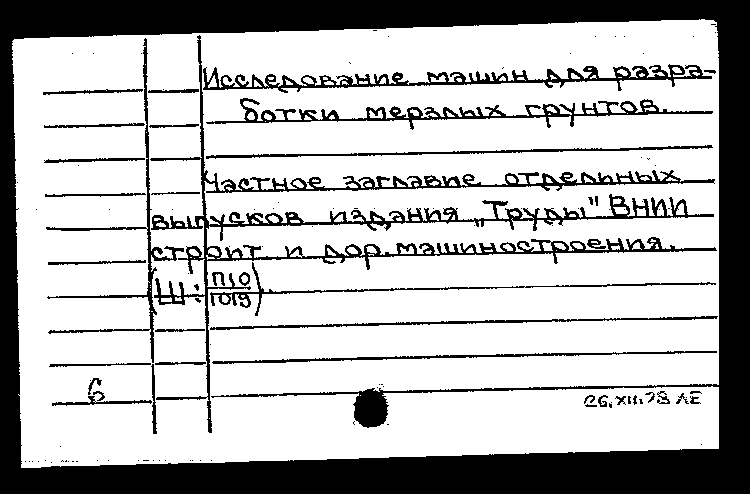 Исследование машин для разра-
ботки мерзлых грунтов.
Частное заглавие отдельных
выпусков издания „Труды" ВНИИ
строит и дор. машиностроения.
(Ш: П10/1019).
6
26.XII.78 ЛЕ